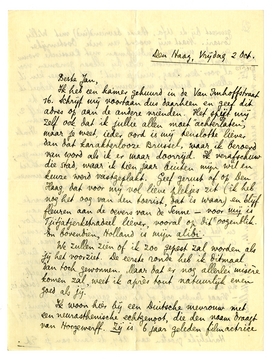 Den Haag, Vrijdag 2 Oct.
Beste Jan,
Ik heb een kamer gehuurd in de Van Imhoffstraat
16. Schrijf mij voortaan dus daarheen en geef dit
adres op aan de andere vrienden. Het spijt mij
zelf ook dat ik jullie allen moet achterlaten,
maar je weet, ieder oord is mij tenslotte liever,
dan dat karakterlooze Brussel, waar ik beroerd
van word als ik er maar doorrijd. Ik verafschuw
die stad, waar ik tien jaar thuis mijn wil en
keuze werd vastgeplakt. Geef gerust of op Den
Haag dat voor mij vol lieve plekjes zit (ik heb
nog het oog van den toerist, dat is waar) en blijf
fleuren aan de oevers van de Senne — voor mij is
liever, vooral op dit oogenblik.
En bovendien, Holland is mijn alibi.
We zullen zien of ik zoo gepest zal worden als
jij het voorziet. De eerste ronde heb ik ditmaal
dan toch gewonnen. Maar dat er nog allerlei misère
komen zal, weet ik après tout natuurlijk even
goed als jij.
Ik woon hier bij een Duitsche mevrouw met
een neurasthenische echtgenoot, die den naam draagt
van Hoogewerff. Zij is 6 jaar geleden filmactrice